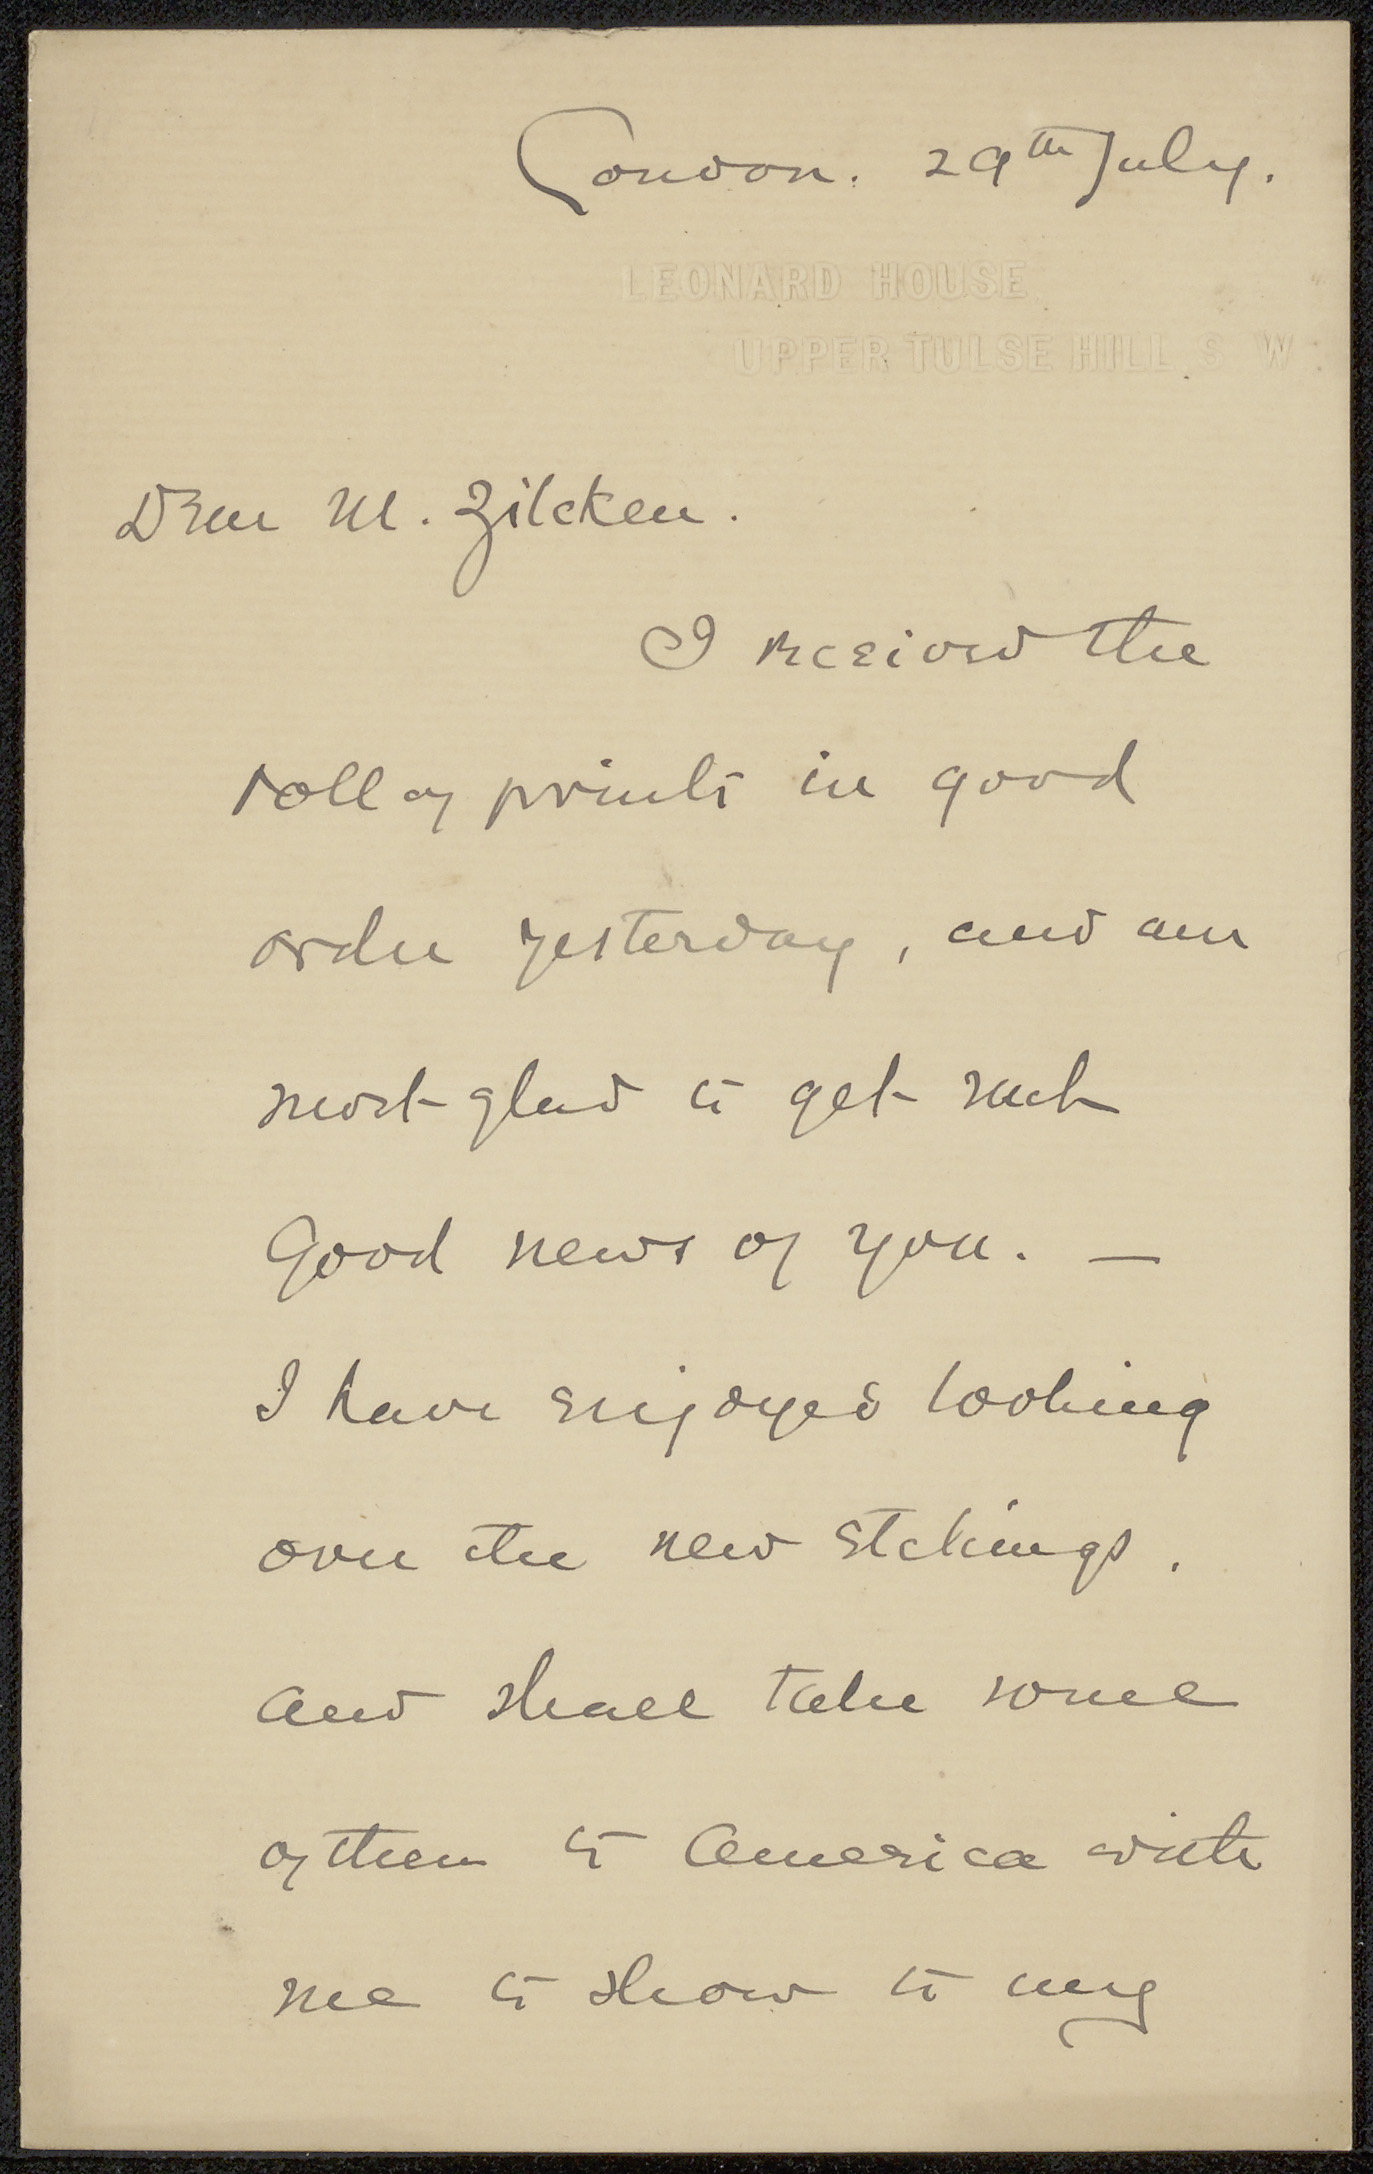 London. 29th July.
LEONARD HOUSE
UPPER TULSE HILL S W
Dear M. Zilcken.
I received the
roll of prints in good
order yesterday, and am
most glad to get such
good news of you. —
I have enjoyed looking
over the new etchings.
and shall take some
of them to America with
me to show to my